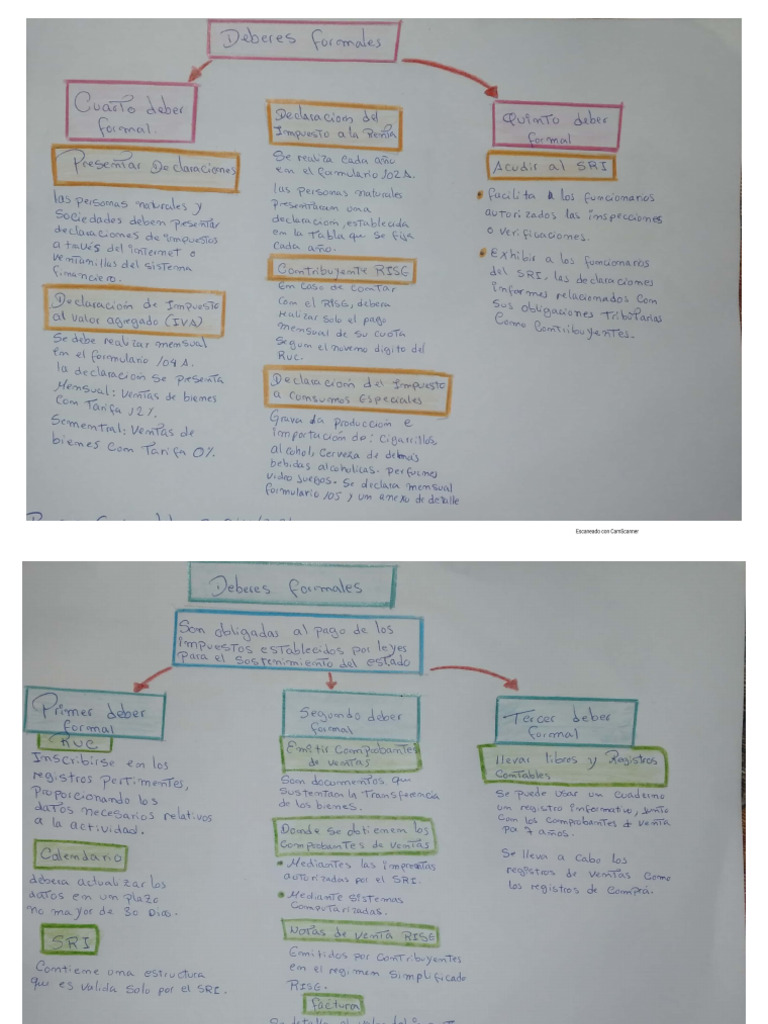 Deberes formales
Cuarto deber
formal.
Presentar Declaraciones
las personas naturales y
Sociedades deben presentar
declaraciones de impuestos
a través del internet o
ventanillas del sistema
financiero.
Declaración de Impuesto
al valor agregado (IVA)
Se debe realizar mensual
en el formulario 104 A.
la declaración se presenta
Mensual: Ventas de bienes
con Tarifa 12%.
Semental: Ventas de
bienes con Tarifa 0%.
Declaración del
Impuesto a la Renta
Se realiza cada año
en el formulario 102 A.
las personas naturales
presentaran una
declaracion, establecada
en la Tabla que se fija
cada año.
Contribuyente RISE
En caso de contar
con el RISE, debera
realizar solo el pago
mensual de su cuota
segun el noveno digito del
Ruc.
Declaración del Impuesto
a Consumos Especiales
Grava la producción e
importación de: Cigarrillos
alcohol, cerveza de demas
bebidas alcoholicas. Perfumes
video juegos. Se declara mensual
formulario 105 y un anexo de detalle
Quinto deber
formal
Acudir al SRI
• facilita a los funcionarios
autorizados las inspecciones
o verificaciones.
• Exhibir a los funcionarios
del SRI. las declaraciones
informes relacionados con
sus obligaciones Tributarias
Como Contribuyentes.
Escaneado con CamScanner
Deberes formales
Son obligadas al pago de los
impuestos establecidos por leyes
para el sostenimiento del estado
Primer deber
formal
RUC
Inscribirse en los
registros pertinentes,
proporcionando los
datos necesarios relativos
a la actividad.
Calendario
debera actualizar los
datos en un plazo
no mayor de 30 Dias.
SRI
Contiene una estructura
que es valida solo por el SRI.
Segundo deber
formal
Emitir Comprobantes
de ventas
Son documentos que
sustentan la Transferencia
de los bienes.
Donde se obtienen los
Comprobantes de Ventas
• Mediantes las imprentas
autorizadas por el SRI.
• Mediante sistemas
Computarizadas.
Notas de venta RISE
Emitidos por Contribuyentes
en el regimen simplificado
RISE.
factura
Tercer deber
formal
llevar libros y Registros
Contables
Se puede usar un cuaderno
un registro informativo, junto
con los comprobantes d venta
pa 7 años.
Se lleva a cabo los
registros de ventas como
los registros de compra.